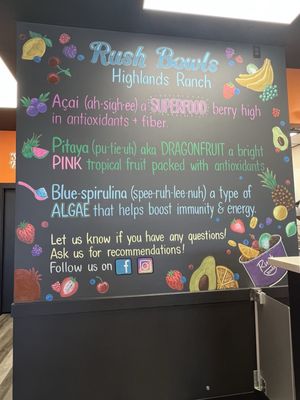 Rush Bowls
Highlands Ranch
Açai (ah-sigh-ee) a SUPERFOOD berry high
in antioxidants + fiber.
Pitaya (pu-tie-uh) aka DRAGONFRUIT a bright
PINK tropical fruit packed with antioxidants
Blue-spirulina (spee-ruh-lee-nuh) a type of
ALGAE that helps boost immunity & energy.
Let us know if you have any questions!
Ask us for recommendations!
Follow us on f